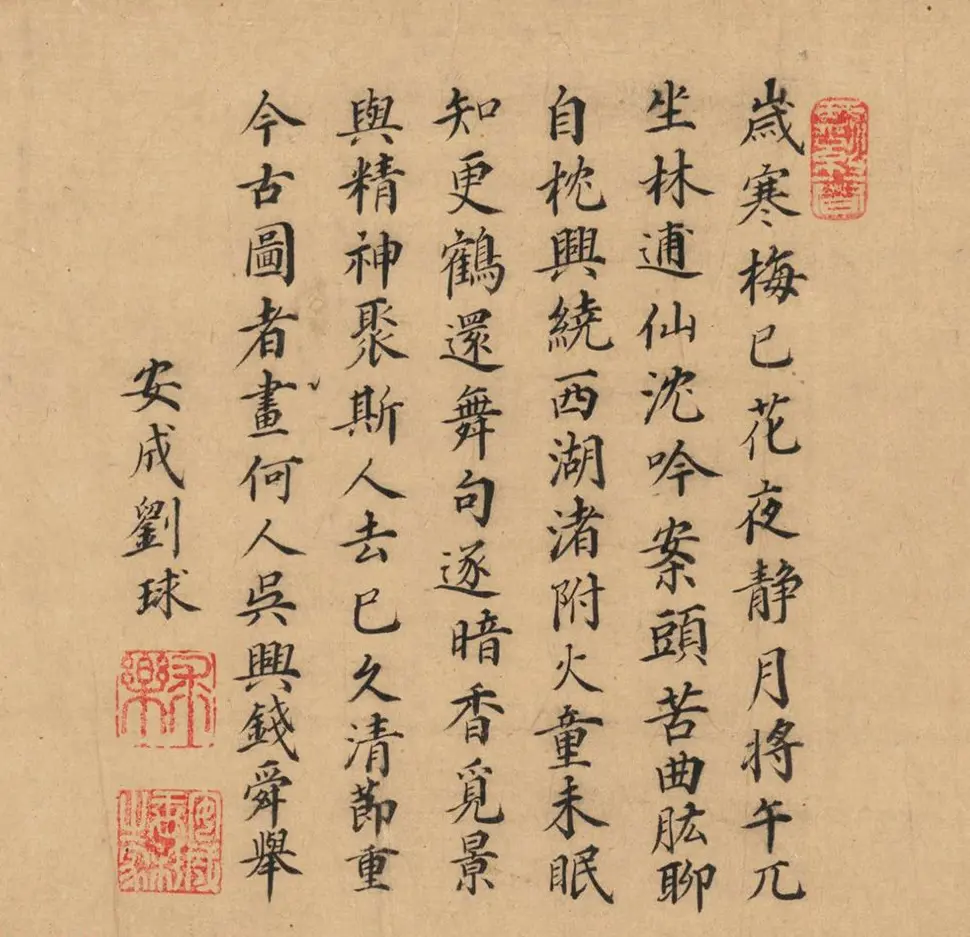 歲寒梅已花夜静月将午兀
坐林逋仙沈吟案頭苦曲肱聊
自枕興繞西湖渚附火童未眠
知更鶴還舞句逐暗香覓景
與精神聚斯人去已久清節重
今古圖者畫何人吳興錢舜舉
安成劉球